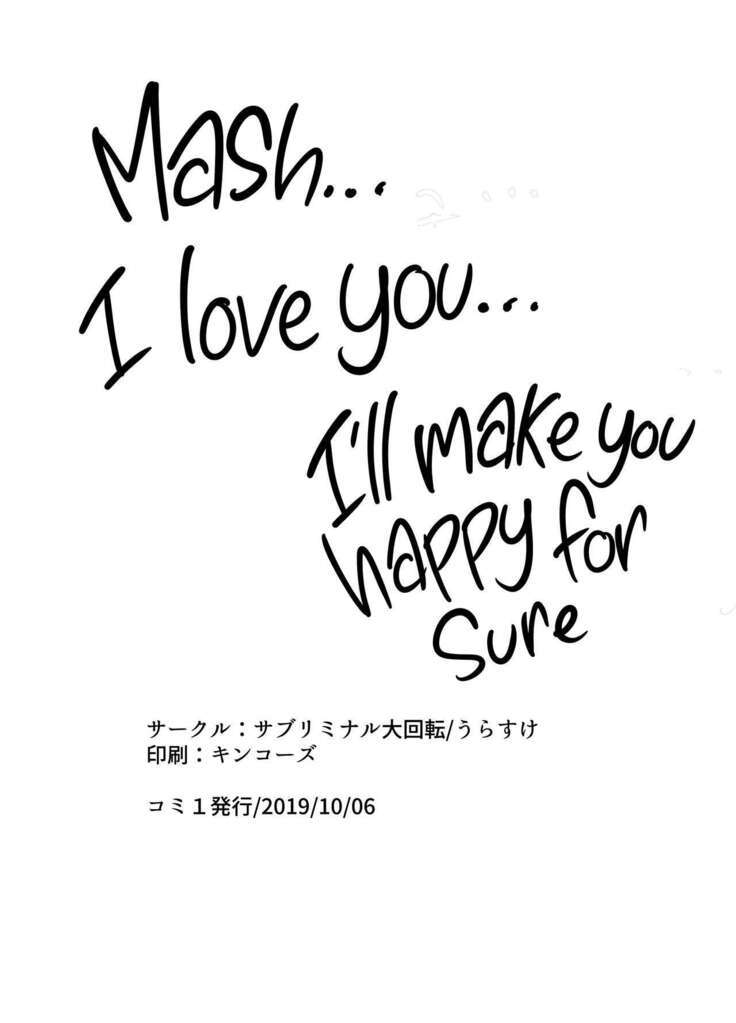 Mash...
I love you...
I'll make you
happy for
sure
サークル：サブリミナル大回転/うらすけ
印刷：キンコーズ
コミ１発行/2019/10/06